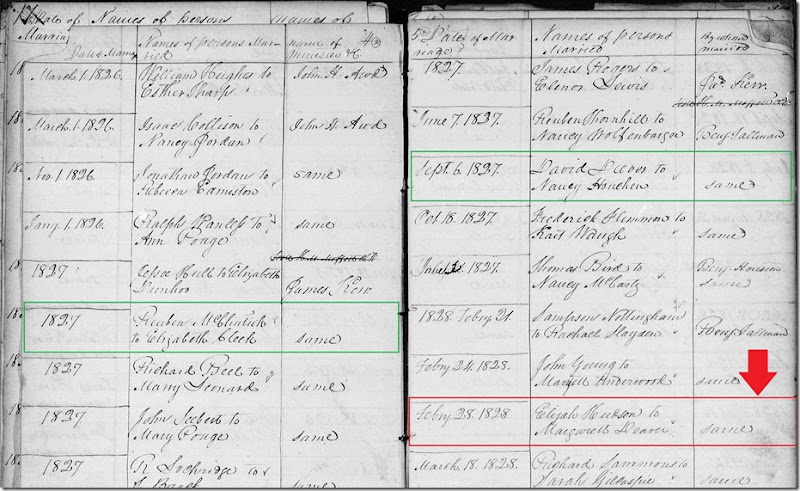 Dates of Names of persons names of
Marriag
Dates Marriag Names of persons Mar- name of
ried minister &c.
March. 1. 1826. William Hughes to John H. Awd
Esther Sharp
March. 1. 1826. Isaac Collison to John H. Awd
Nancy Jordan
Nov. 1 1826. Jonathan Jordan to same
Rebecca
Jany. 1. 1826. Ralph to same
Ann Poage
1827 Hull to Elizabeth
James Kerr
1827 Reuben McClintick
to Elizabeth Cleek same
1827 Richard Beel to
Mary Leonard same
1827 John to
Mary Poage same
1827 R Lochridge to
same
Dates of Mar Names of persons By whom
riage Married married
1827. James Rogers to
Elenor Lewis Jas. Kerr.
June 7. 1827. Reuben Thornhill to
Nancy Wolfenbarger Benj Tallman
Sept. 6. 1827. David Deever to
Nancy Houchen same
Oct 18. 1827. Frederick to
Waugh same
1827. Thomas Bird to Benj Houston
Nancy McCarty same
1828 Febry 21. Sampson Nottingham
to Rachael Slayden Benj Tallman
Febry 24. 1828. John Young to
Underwood same
Febry. 28. 1828 Elijah Hudson to
Margarett Deaver same
March. 18. 1828. Richard Sammons to
Sarah Gillaspie same